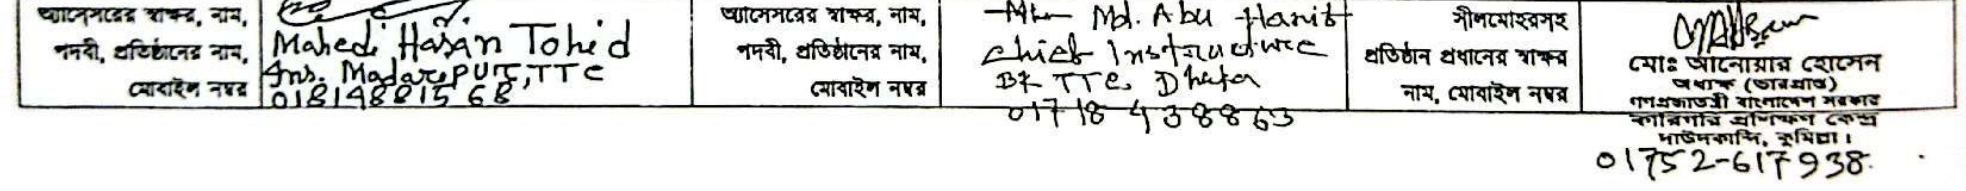 এ্যাসেসরের স্বাক্ষর, নাম,
পদবী, প্রতিষ্ঠানের নাম,
মোবাইল নম্বর
Mahedi Hasan Tohid
Ins. Madaripur, TTC
01814881568
এ্যাসেসরের স্বাক্ষর, নাম,
পদবী, প্রতিষ্ঠানের নাম,
মোবাইল নম্বর
Md. Abu Hanif
Chief Instructure
BK TTC, Dhaka
01718438863
সীলমোহরসহ
প্রতিষ্ঠান প্রধানের স্বাক্ষর
নাম, মোবাইল নম্বর
মোঃ আনোয়ার হোসেন
অধ্যক্ষ (ভারপ্রাপ্ত)
গণপ্রজাতন্ত্রী বাংলাদেশ সরকার
কারিগরি প্রশিক্ষণ কেন্দ্র
দাউদকান্দি, কুমিল্লা।
01752-617938